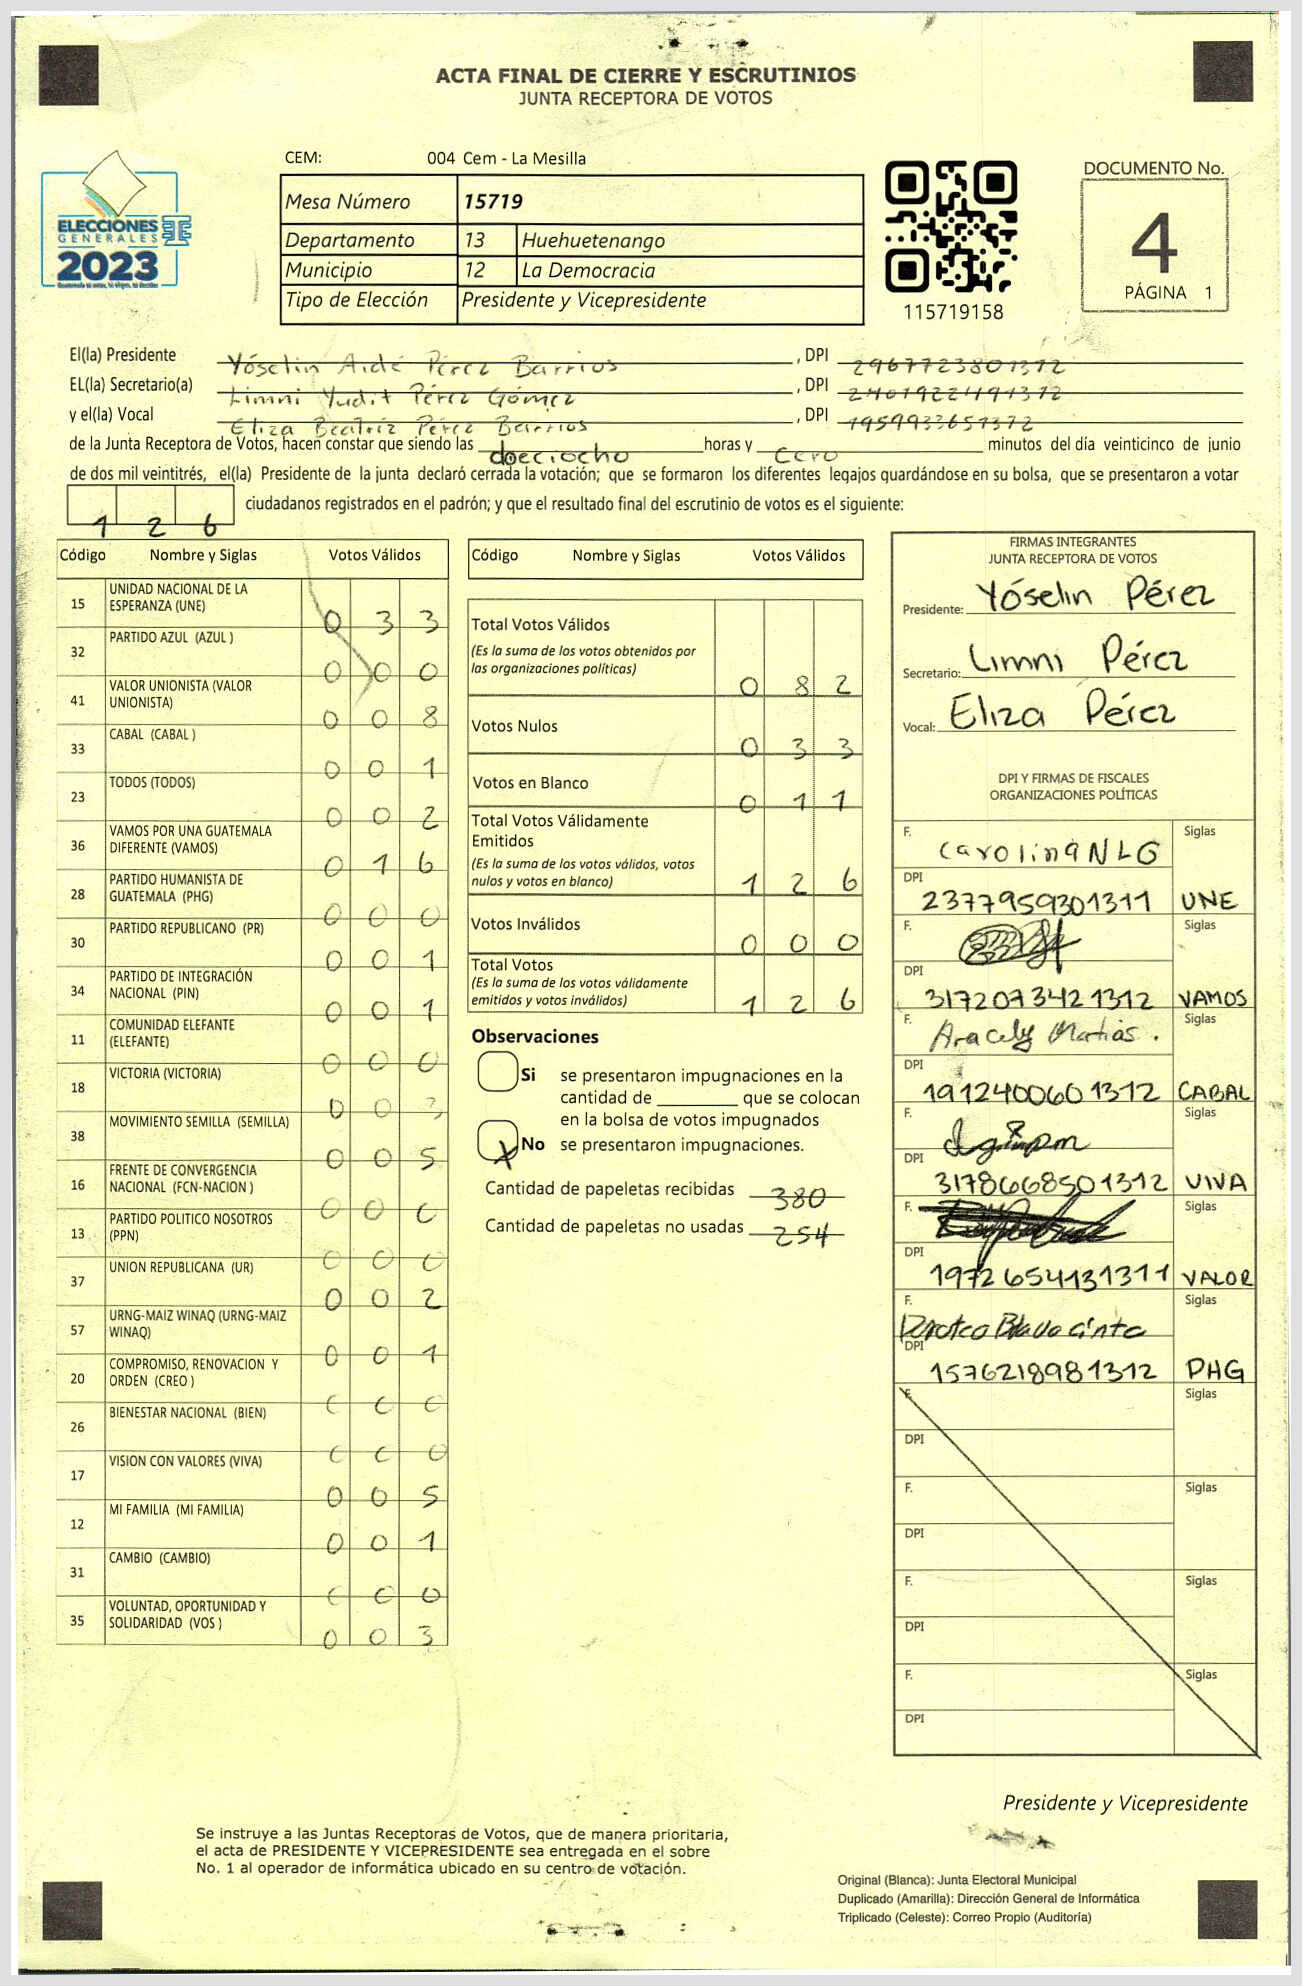 ACTA FINAL DE CIERRE Y ESCRUTINIOS
JUNTA RECEPTORA DE VOTOS
CEM: 004 Cem - La Mesilla
Mesa Número 15719
Departamento 13 Huehuetenango
Municipio 12 La Democracia
Tipo de Elección Presidente y Vicepresidente
ELECCIONES
GENERALES
2023
115719158
DOCUMENTO No.
4
PÁGINA 1
El(la) Presidente Yóselin Aidé Pérez Barrios, DPI 2967723801312
EL(la) Secretario(a) Limni Yudit Pérez Gómez, DPI 2401922491312
y el(la) Vocal Eliza Beatriz Pérez Barrios, DPI 1959933651312
de la Junta Receptora de Votos, hacen constar que siendo las dieciocho horas y Cero minutos del día veinticinco de junio
de dos mil veintitrés, el(la) Presidente de la junta declaró cerrada la votación; que se formaron los diferentes legajos quardándose en su bolsa, que se presentaron a votar
1 2 6 ciudadanos registrados en el padrón; y que el resultado final del escrutinio de votos es el siguiente:
Código Nombre y Siglas Votos Válidos
15 UNIDAD NACIONAL DE LA ESPERANZA (UNE) 0 3 3
32 PARTIDO AZUL (AZUL ) 0 0 0
41 VALOR UNIONISTA (VALOR UNIONISTA) 0 0 8
33 CABAL (CABAL ) 0 0 1
23 TODOS (TODOS) 0 0 2
36 VAMOS POR UNA GUATEMALA DIFERENTE (VAMOS) 0 1 6
28 PARTIDO HUMANISTA DE GUATEMALA (PHG) 0 0 0
30 PARTIDO REPUBLICANO (PR) 0 0 1
34 PARTIDO DE INTEGRACIÓN NACIONAL (PIN) 0 0 1
11 COMUNIDAD ELEFANTE (ELEFANTE) 0 0 0
18 VICTORIA (VICTORIA) 0 0 3
38 MOVIMIENTO SEMILLA (SEMILLA) 0 0 5
16 FRENTE DE CONVERGENCIA NACIONAL (FCN-NACION ) 0 0 0
13 PARTIDO POLITICO NOSOTROS (PPN) 0 0 0
37 UNION REPUBLICANA (UR) 0 0 2
57 URNG-MAIZ WINAQ (URNG-MAIZ WINAQ) 0 0 1
20 COMPROMISO, RENOVACION Y ORDEN (CREO ) 0 0 0
26 BIENESTAR NACIONAL (BIEN) 0 0 0
17 VISION CON VALORES (VIVA) 0 0 5
12 MI FAMILIA (MI FAMILIA) 0 0 1
31 CAMBIO (CAMBIO) 0 0 0
35 VOLUNTAD, OPORTUNIDAD Y SOLIDARIDAD (VOS ) 0 0 3
Código Nombre y Siglas Votos Válidos
Total Votos Válidos 0 8 2
(Es la suma de los votos obtenidos por
las organizaciones politicas)
Votos Nulos 0 3 3
Votos en Blanco 0 1 1
Total Votos Válidamente
Emitidos 1 2 6
(Es la suma de los votos válidos, votos
nulos y votos en blanco)
Votos Inválidos 0 0 0
Total Votos 1 2 6
(Es la suma de los votos válidamente
emitidos y votos inválidos)
Observaciones
Si se presentaron impugnaciones en la
cantidad de ________ que se colocan
en la bolsa de votos impugnados
X No se presentaron impugnaciones.
Cantidad de papeletas recibidas 380
Cantidad de papeletas no usadas 254
FIRMAS INTEGRANTES
JUNTA RECEPTORA DE VOTOS
Presidente: Yóselin Pérez
Secretario: Limni Pérez
Vocal: Eliza Pérez
DPI Y FIRMAS DE FISCALES
ORGANIZACIONES POLÍTICAS
F. Carolina NLG Siglas
DPI 2377959301311 UNE
F. Siglas
DPI 3172073421312 VAMOS
F. Aracely Matias. Siglas
DPI 191240060 1312 CABAL
F. Siglas
DPI 3178668501312 VIVA
F. Siglas
DPI 1972654131311 VALOR
F. Siglas
DPI 1576218981312 PHG
F. Siglas
DPI
F. Siglas
DPI
F. Siglas
DPI
F. Siglas
DPI
Presidente y Vicepresidente
Se instruye a las Juntas Receptoras de Votos, que de manera prioritaria,
el acta de PRESIDENTE Y VICEPRESIDENTE sea entregada en el sobre
No. 1 al operador de informática ubicado en su centro de votación.
Original (Blanca): Junta Electoral Municipal
Duplicado (Amarilla): Dirección General de Informática
Triplicado (Celeste): Correo Propio (Auditoría)